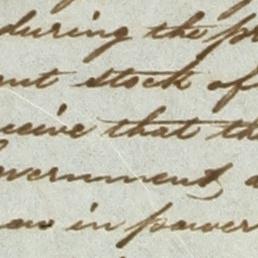 during the pr
ent stock of
ceive that th
overnment a
now in power